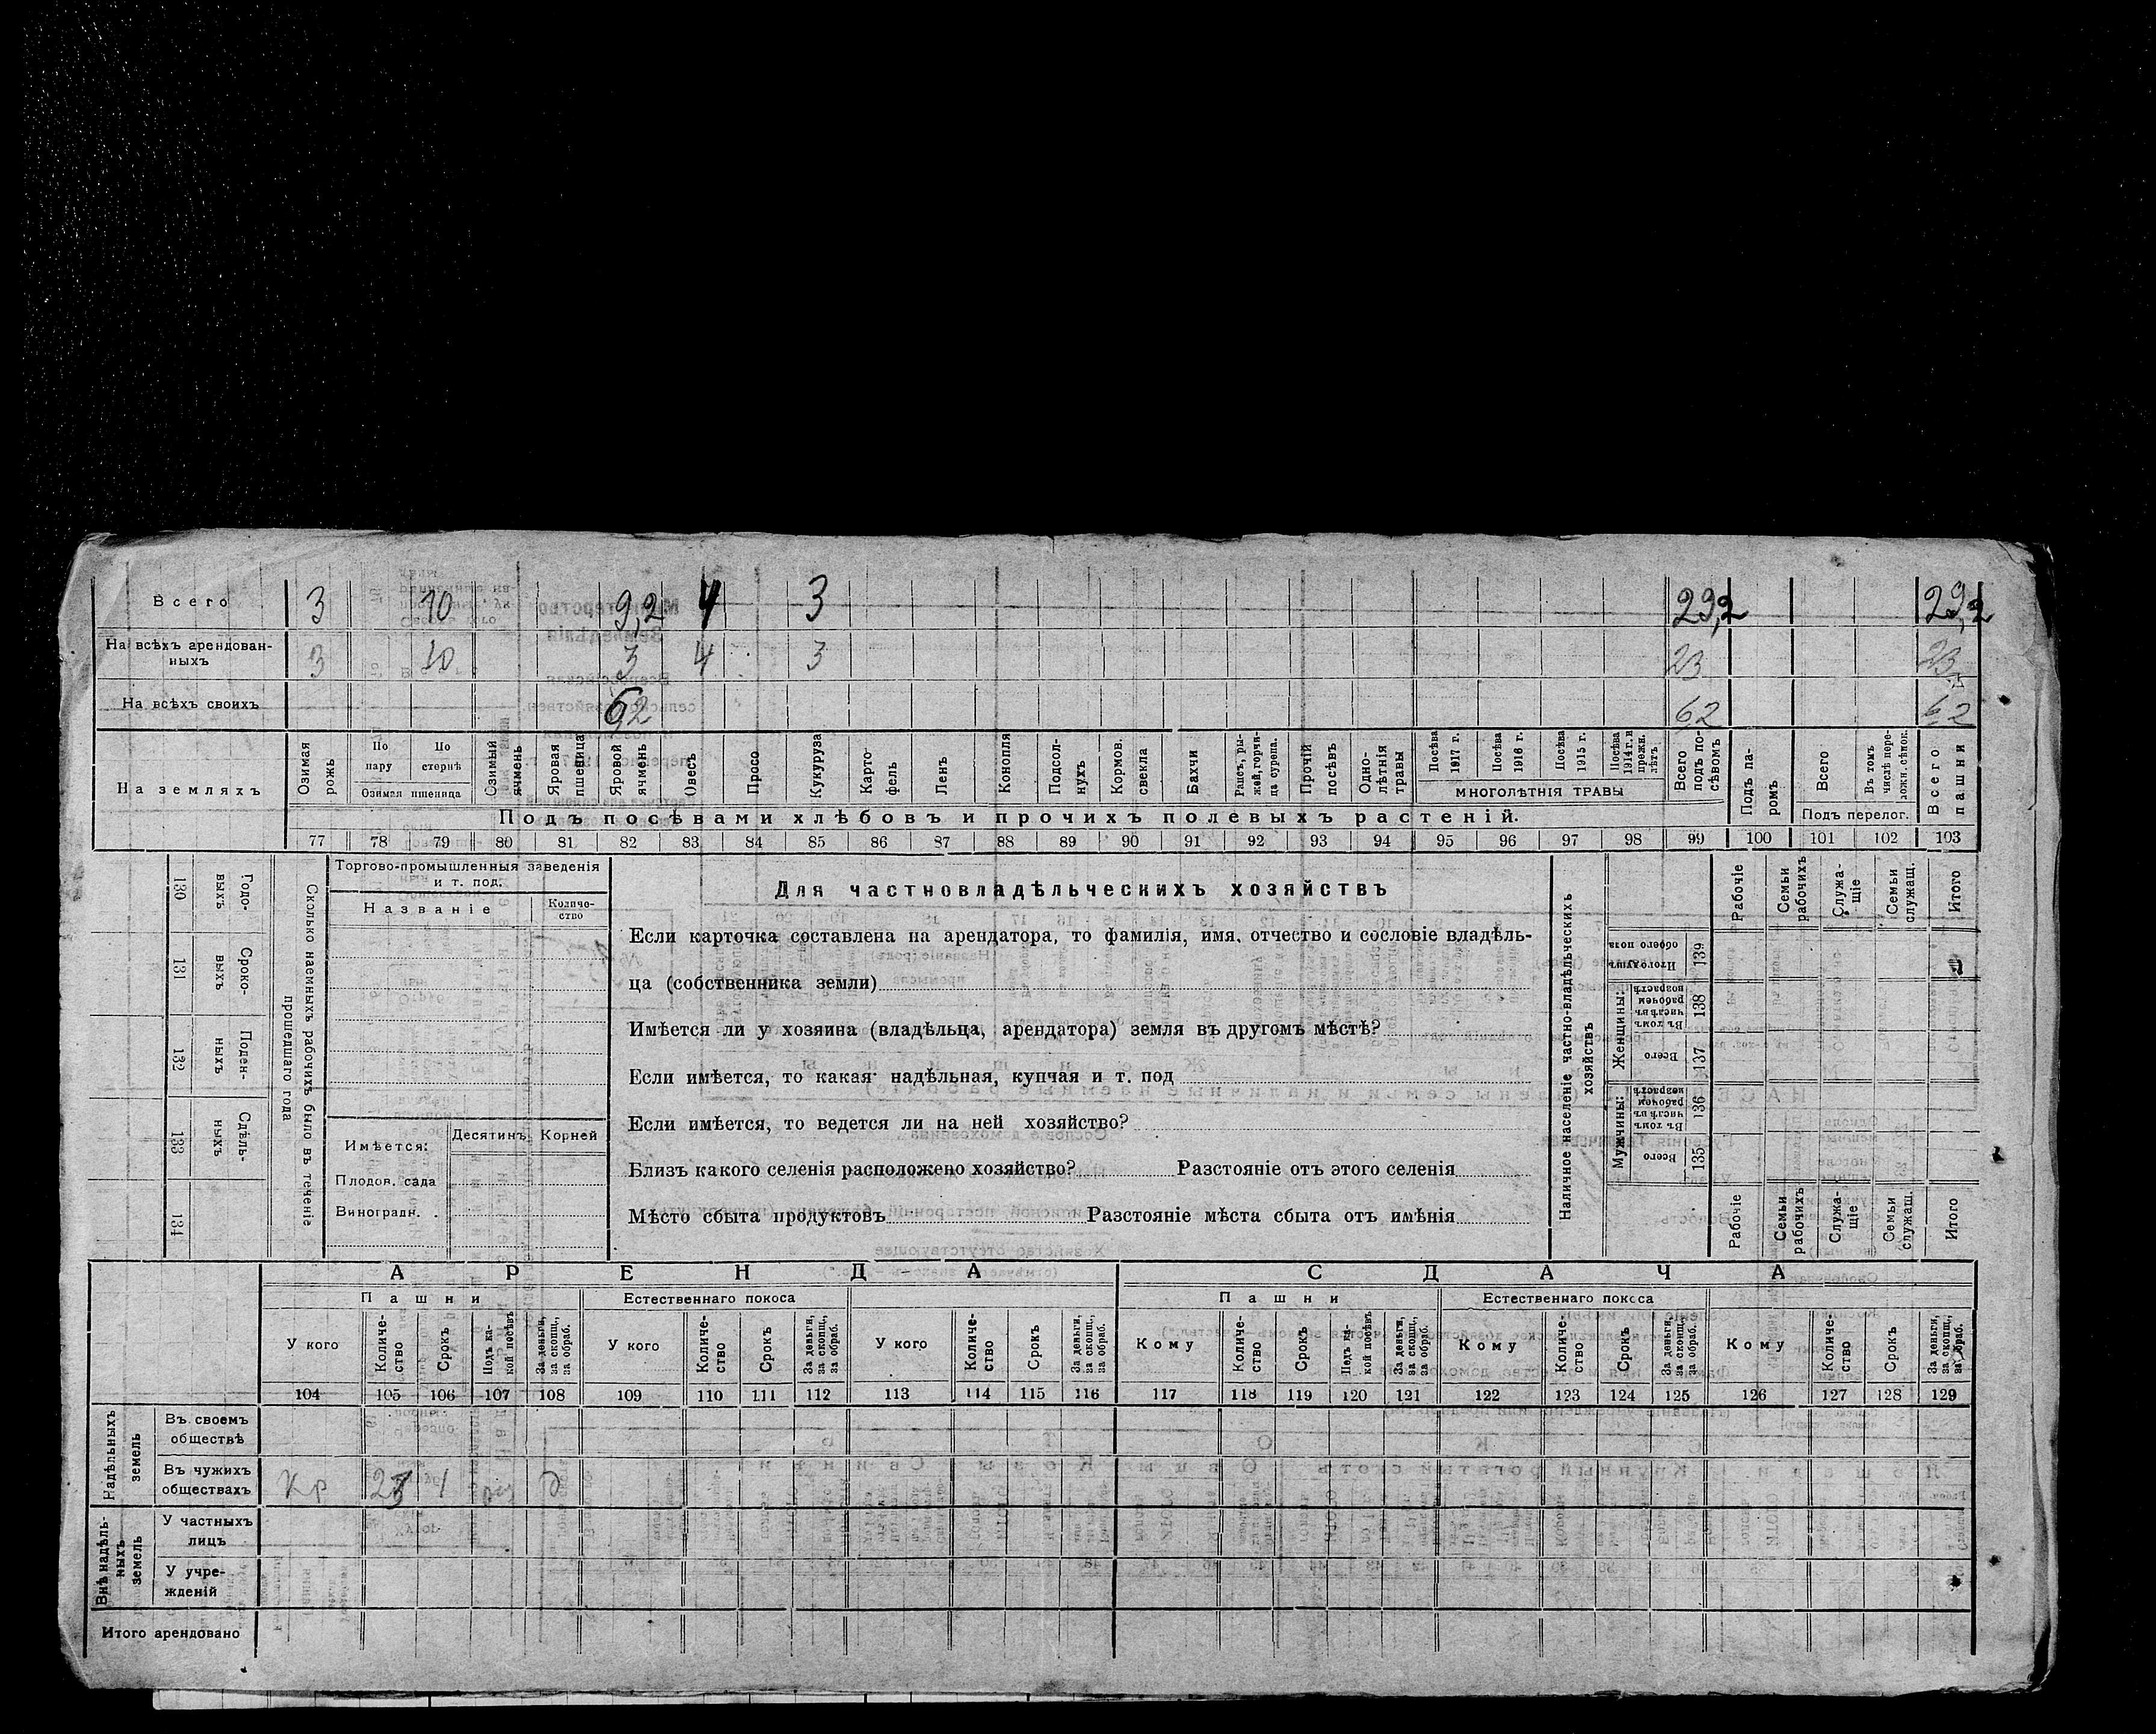 Всего 3 10 9,2 4 3 29,2 29,2
На всѣхъ арендован-
ныхъ 3 10 3 4 3 23 23
На всѣхъ своихъ 62 62 62
На земляхъ
Озимая рожь
По пару
По стернѣ
Озимая пшеница
Озимый ячмень
Яровая пшеница
Яровой ячмень
Овесъ
Просо
Кукуруза
Карто-
фель
Ленъ
Конопля
Подсол-
нухъ
Кормов.
свекла
Бахчи
Рапсъ, ры-
жей, горчи-
ца сурепа.
Прочій
посѣвъ
Одно-
лѣтнія
травы
Посѣва
1917 г.
Посѣва
1916 г.
Посѣва
1915 г.
Посѣва
1914 г. и
прежн.
лѣтъ
МНОГОЛѢТНІЯ ТРАВЫ
Всего
подъ по-
сѣвомъ
Подъ па-
ромъ
Всего
Въ томъ
числѣ пере-
ложн. сѣнок.
Подъ перелог.
Всего
пашни
Подъ посѣвами хлѣбовъ и прочихъ полевыхъ растеній.
77 78 79 80 81 82 83 84 85 86 87 88 89 90 91 92 93 94 95 96 97 98 99 100 101 102 103
130 Годо-
выхъ
131 Сроко-
выхъ
132 Поден-
ныхъ
133 Сдѣль-
ныхъ
134
Сколько наемныхъ рабочихъ было въ теченіе
прошедшаго года
Торгово-промышленныя заведенія
и т. под.
Названіе
Количе-
ство
Имѣется:
Десятинъ
Корней
Плодов. сада
Виноградн.
Для частновладѣльческихъ хозяйствъ
Если карточка составлена на арендатора, то фамилія, имя, отчество и сословіе владѣль-
ца (собственника земли)
Имѣется ли у хозяина (владѣльца, арендатора) земля въ другомъ мѣстѣ?
Если имѣется, то какая надѣльная, купчая и т. под
Если имѣется, то ведется ли на ней хозяйство?
Близъ какого селенія расположено хозяйство? Разстояніе отъ этого селенія
Мѣсто сбыта продуктовъ Разстояніе мѣста сбыта отъ имѣнія
Наличное населеніе частно-владѣльческихъ
хозяйствъ
Рабочіе
Семьи
рабочихъ
Служа-
щіе
Семьи
служащ.
Итого
Итого душъ
обоего пола
139
Женщины:
Въ томъ
числѣ въ
рабочем
возрастѣ
138
Всего
137
Мужчины:
Въ томъ
числѣ въ
рабочем
возрастѣ
136
Всего
135
Рабочіе
Семьи
рабочихъ
Служа-
щіе
Семьи
служащ.
Итого
АРЕНДА СДАЧА
Пашни Естественнаго покоса Пашни Естественнаго покоса
У кого
Количе-
ство
Срокъ
Подъ ка-
кой посѣвъ
За деньги,
за скопщ.,
за обраб.
У кого
Количе-
ство
Срокъ
За деньги,
за скопщ.,
за обраб.
У кого
Количе-
ство
Срокъ
За деньги,
за скопщ.,
за обраб.
Кому
Количе-
ство
Срокъ
Подъ ка-
кой посѣвъ
За деньги,
за скопщ.,
за обраб.
Кому
Количе-
ство
Срокъ
За деньги,
за скопщ.,
за обраб.
Кому
Количе-
ство
Срокъ
За деньги,
за скопщ.,
за обраб.
104 105 106 107 108 109 110 111 112 113 114 115 116 117 118 119 120 121 122 123 124 125 126 127 128 129
Надѣльныхъ
земель
Въ своемъ
обществѣ
Въ чужихъ
обществахъ
кр 23 1 д
Внѣ надѣль-
ныхъ
земель
У частныхъ
лицъ
У учре-
жденій
Итого арендовано